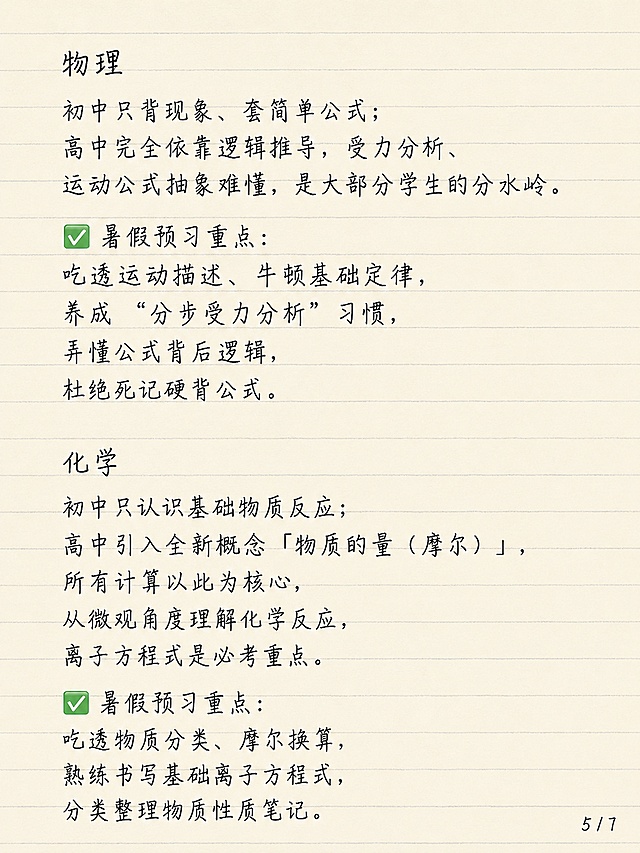 物理
初中只背现象、套简单公式；
高中完全依靠逻辑推导，受力分析、
运动公式抽象难懂，是大部分学生的分水岭。
✅ 暑假预习重点：
吃透运动描述、牛顿基础定律，
养成 “分步受力分析” 习惯，
弄懂公式背后逻辑，
杜绝死记硬背公式。
化学
初中只认识基础物质反应；
高中引入全新概念「物质的量（摩尔）」，
所有计算以此为核心，
从微观角度理解化学反应，
离子方程式是必考重点。
✅ 暑假预习重点：
吃透物质分类、摩尔换算，
熟练书写基础离子方程式，
分类整理物质性质笔记。
5/7